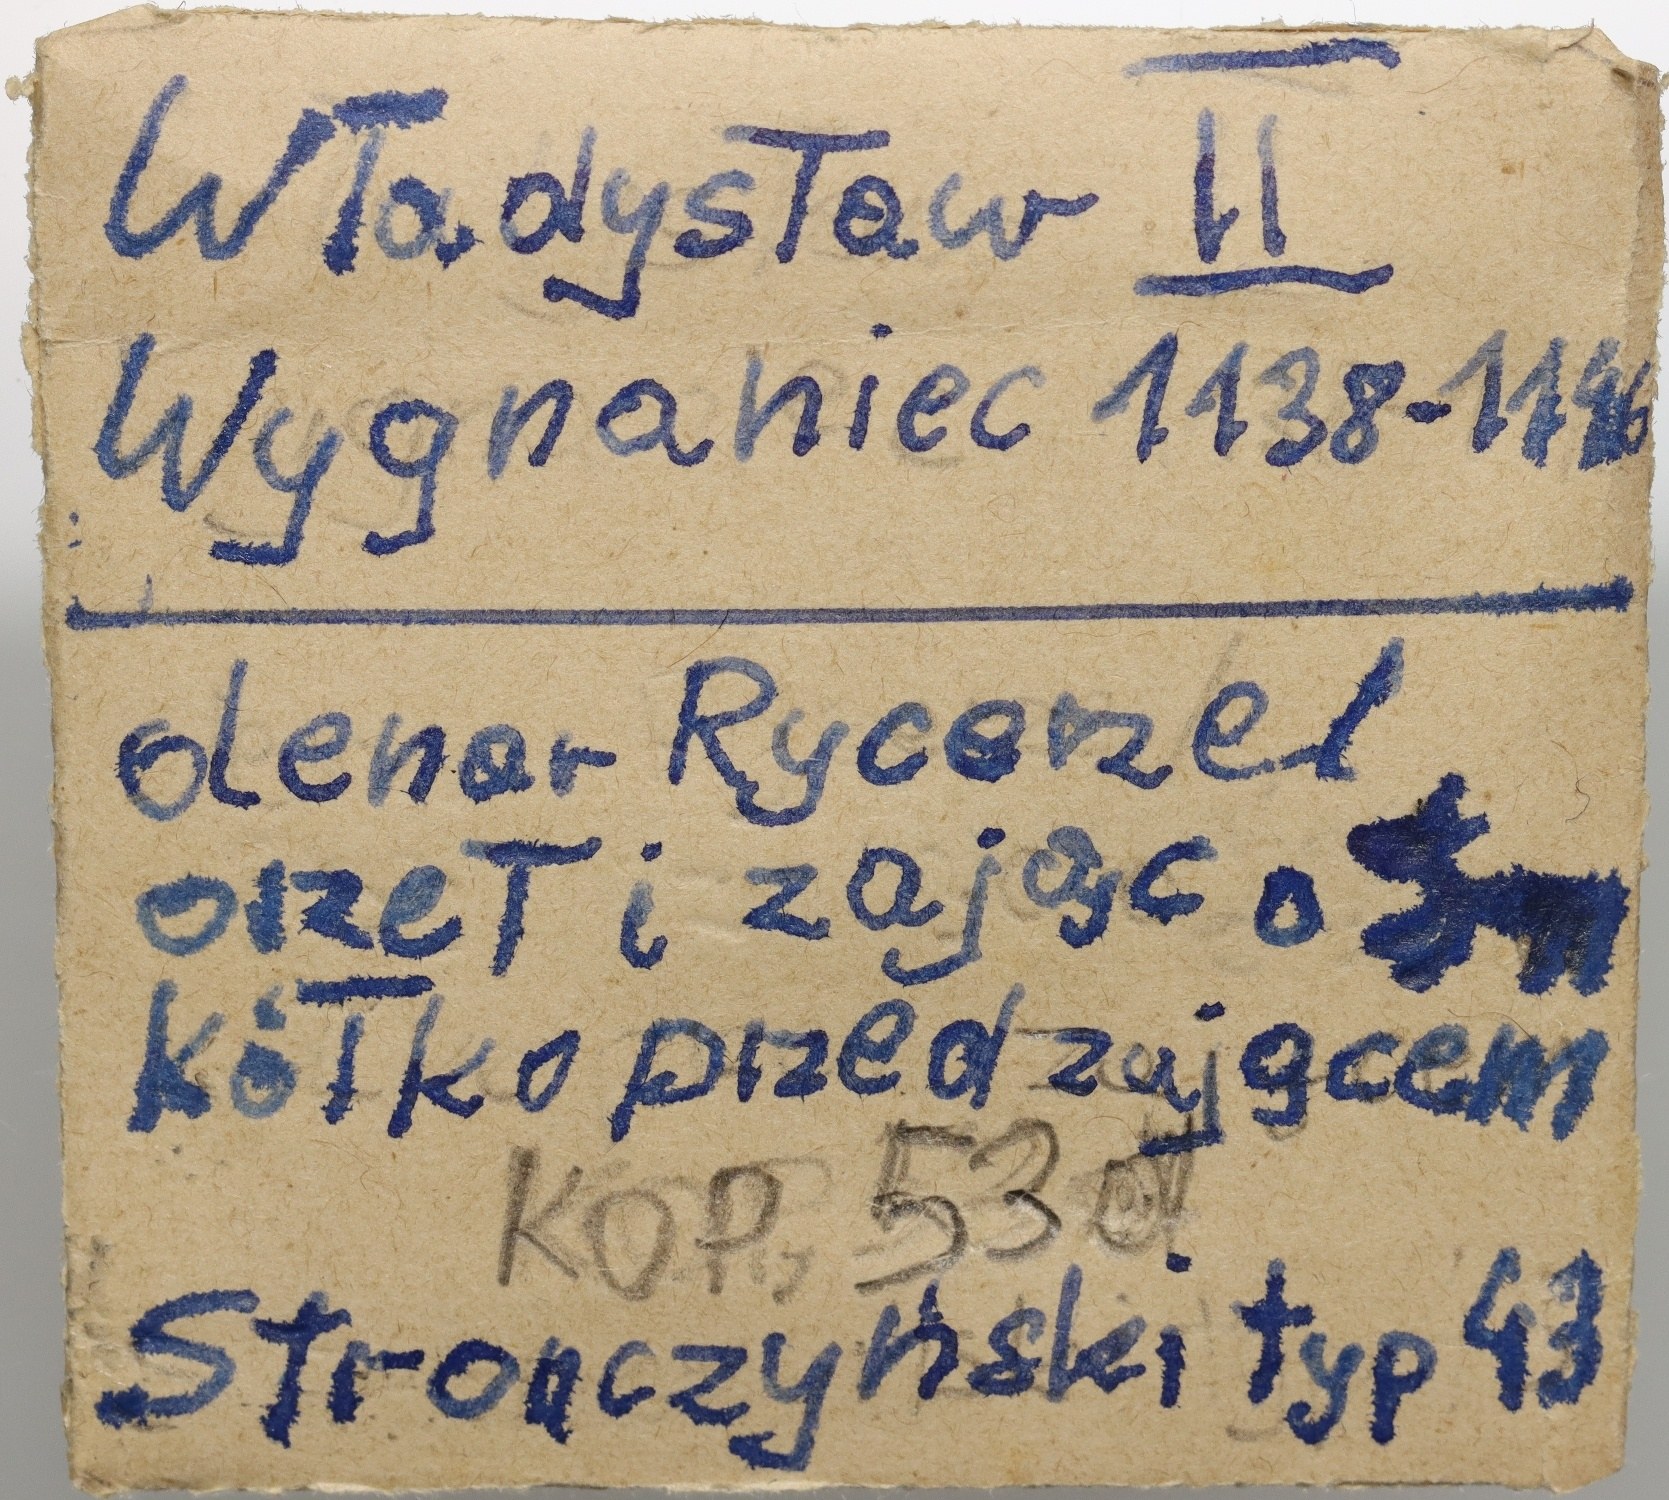 Władysław II
Wygnaniec 1138-1146
denar Rycerz
orzeł i zając o
kółko przed zającem
KOP. 53
Stronczyński typ 43